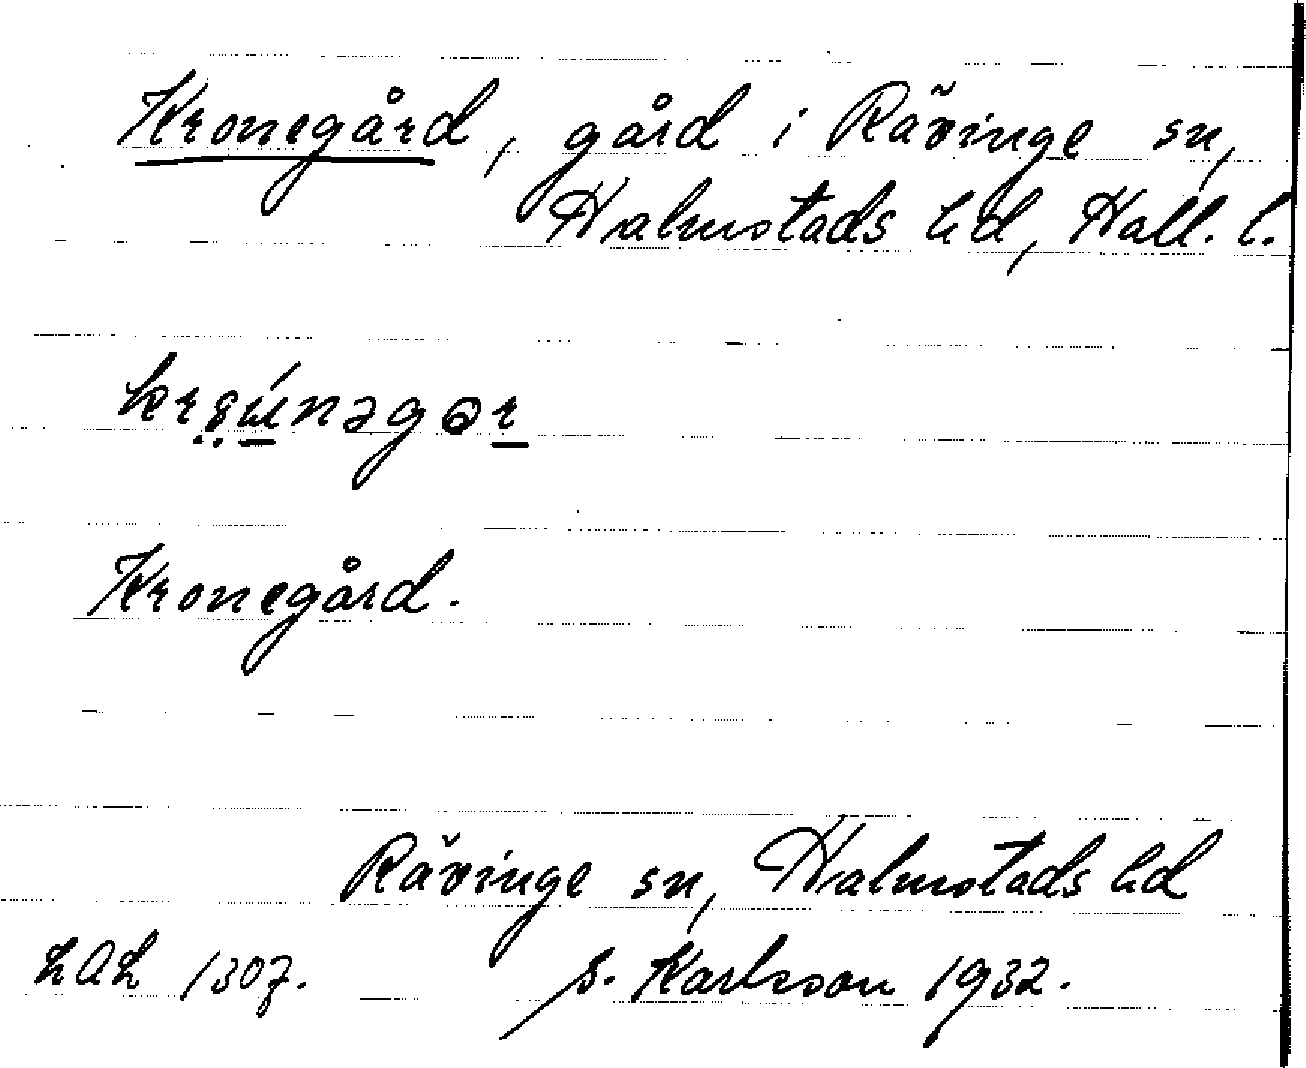 Kronegård, gård i Rävinge sn,
Halmstads hd, Hall. l.
Kronegård.
Rävinge sn, Halmstads hd
LAL 1307. S. Karlsson 1932.